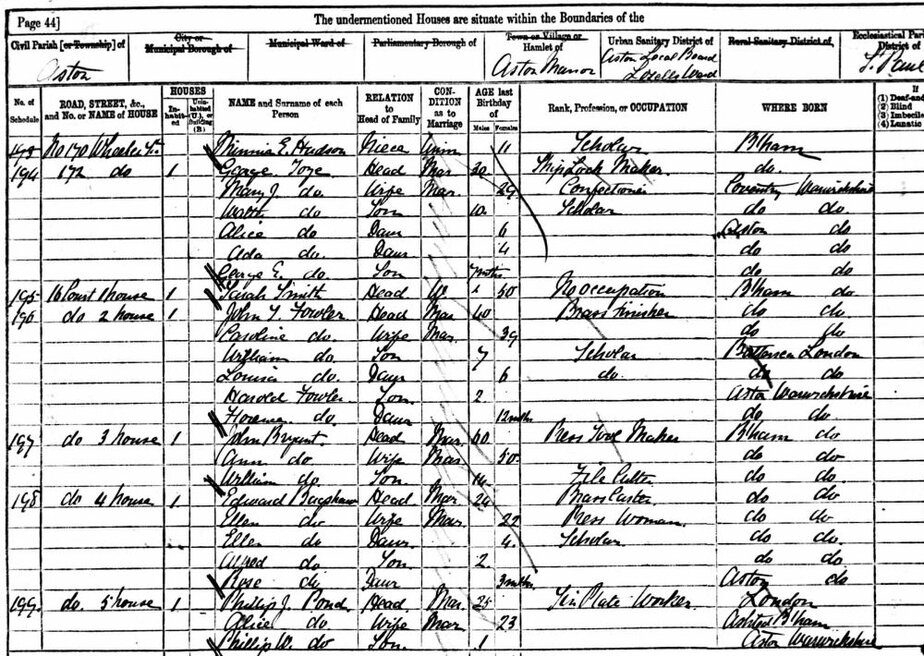 Page 44] The undermentioned Houses are situate within the Boundaries of the
Civil Parish [or Township] of City or Municipal Borough of Municipal Ward of Parliamentary Borough of Town or Village or Hamlet of Urban Sanitary District of Rural Sanitary District of Ecclesiastical Pari District of
Aston Aston Manor Aston Local Board Lozells Ward St Paul
No. of Schedule ROAD, STREET, &c., and No. or NAME of HOUSE HOUSES Inhabited Uninhabited (U.), or Building (B.) NAME and Surname of each Person RELATION to Head of Family CONDITION as to Marriage AGE last Birthday of Males Females Rank, Profession, or OCCUPATION WHERE BORN If (1) Deaf-and (2) Blind (3) Imbecile (4) Lunatic
193 No 170 Wheeler St Minnie E. Hudson Niece Unm 11 Scholar B'ham
194 172 do 1 George Toye Head Mar 30 Lock Maker do.
Mary J do Wife Mar. 29 Confectioner Coventry Warwickshire
Walter do Son 10 Scholar do do.
Alice do Daur 6 Aston do
Ada do. Daur 4 do do
George E. do Son 7 mths do do
195 16 Court 1 house 1 Sarah Smith Head W 50 No occupation B'ham do
196 do 2 house 1 John T. Fowler Head Mar 40 Brass Finisher do do
Caroline do. Wife Mar. 39 do do
William do Son 7 Scholar Battersea London
Louisa do. Daur 6 do. do do
Harold Fowler Son 2 Aston Warwickshire
Florence do. Daur 12 mths do do
197 do 3 house 1 John Bryant Head Mar. 60 Press Tool Maker B'ham do
Ann do Wife Mar 50 do do
William do. Son 14 File Cutter do do
198 do 4 house 1 Edward Bagshaw Head Mar 24 Brass Caster do do
Ellen do Wife Mar. 22 Press Woman do do
Ellen do Daur 4. Scholar do do
Alfred do Son 2. do do.
Rose do Daur 3 mths Aston do
199. do. 5 house 1 Phillip J. Pond Head Mar. 25 Tin Plate Worker London
Alice do Wife Mar 23 Ashted B'ham
Phillip W. do Son 1 Aston Warwickshire